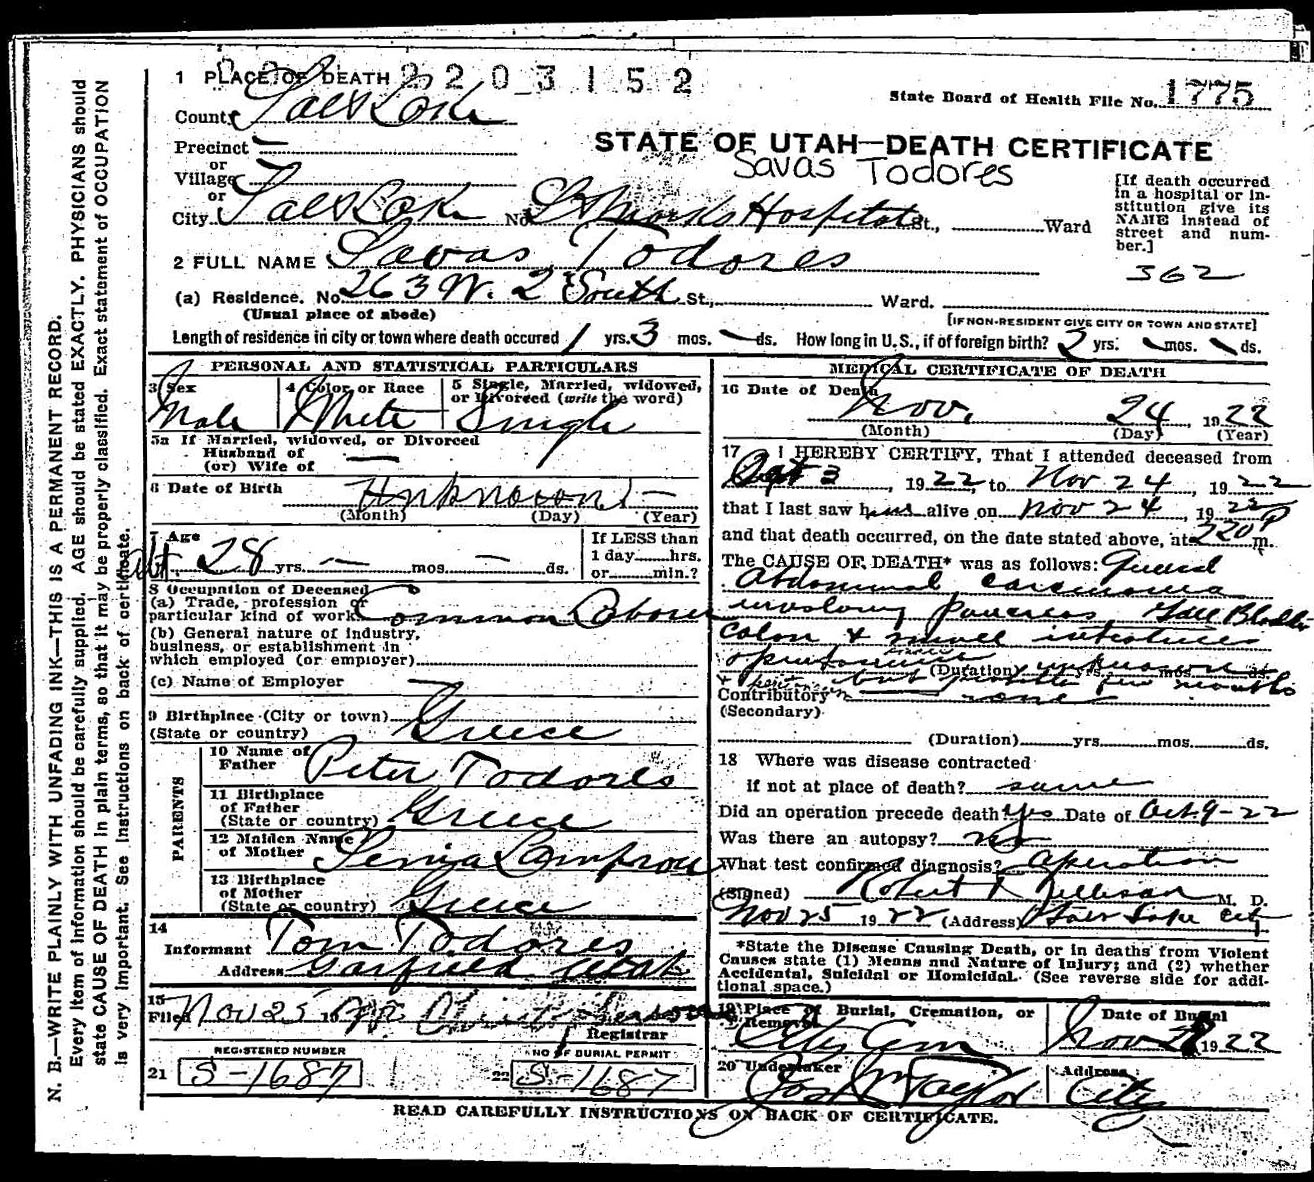 1 PLACE OF DEATH 2203152
State Board of Health File No. 1775
County Salt Lake
STATE OF UTAH—DEATH CERTIFICATE
Precinct —
Savas Todores
or
Village
or
City Salt Lake No. St Marks Hospital St., Ward
[If death occurred
in a hospital or in-
stitution give its
NAME instead of
street and num-
ber.]
362
2 FULL NAME Savas Todores
(a) Residence. No. 263 W. 2 South St., Ward.
(Usual place of abode) [IF NON-RESIDENT GIVE CITY OR TOWN AND STATE]
Length of residence in city or town where death occured 1 yrs. 3 mos. — ds. How long in U. S., if of foreign birth? yrs. — mos. — ds.
PERSONAL AND STATISTICAL PARTICULARS
3 Sex 4 Color or Race 5 Single, Married, widowed,
or Divorced (write the word)
Male White Single
5a If Married, widowed, or Divorced
Husband of
(or) Wife of —
6 Date of Birth Unknown —
(Month) (Day) (Year)
7 Age If LESS than
abt. 28 yrs. — mos. — ds. 1 day hrs.
or min.?
8 Occupation of Deceased
(a) Trade, profession or
particular kind of work Common Laborer
(b) General nature of industry,
business, or establishment in
which employed (or employer)
(c) Name of Employer
9 Birthplace (City or town)
(State or country) Greece
PARENTS
10 Name of
Father Peter Todores
11 Birthplace
of Father
(State or country) Greece
12 Maiden Name
of Mother
13 Birthplace
of Mother
(State or country) Greece
14
Informant Tom Todores
Address Garfield Utah
15
Filed Nov 25 19
Registrar
REGISTERED NUMBER NO OF BURIAL PERMIT
21 S-1687 22 S-1687
MEDICAL CERTIFICATE OF DEATH
16 Date of Death
Nov. 24 1922
(Month) (Day) (Year)
17 I HEREBY CERTIFY, That I attended deceased from
3, 1922, to Nov 24, 1922
that I last saw him alive on Nov 24, 1922
and that death occurred, on the date stated above, at 220 P m.
The CAUSE OF DEATH* was as follows: General
Abdominal carcinoma
involving pancreas Gall Bladder
colon & small intestines
(Duration) unknown yrs. mos. ds.
but few months
Contributory none
(Secondary)
(Duration) yrs. mos. ds.
18 Where was disease contracted
if not at place of death? same
Did an operation precede death? Yes Date of Oct. 9-22
Was there an autopsy? no
What test confirmed diagnosis? Operation
(Signed) Robert M. D.
Nov 25 1922 (Address) Salt Lake City
*State the Disease Causing Death, or in deaths from Violent
Causes state (1) Means and Nature of Injury; and (2) whether
Accidental, Suicidal or Homicidal. (See reverse side for addi-
tional space.)
19 Place of Burial, Cremation, or Date of Burial
Removal
City Cem Nov 1922
20 Undertaker Address
Jos. Wm Taylor City
READ CAREFULLY INSTRUCTIONS ON BACK OF CERTIFICATE.
N. B.—WRITE PLAINLY WITH UNFADING INK—THIS IS A PERMANENT RECORD.
Every item of information should be carefully supplied. AGE should be stated EXACTLY. PHYSICIANS should
state CAUSE OF DEATH in plain terms, so that it may be properly classified. Exact statement of OCCUPATION
is very important. See instructions on back of certificate.